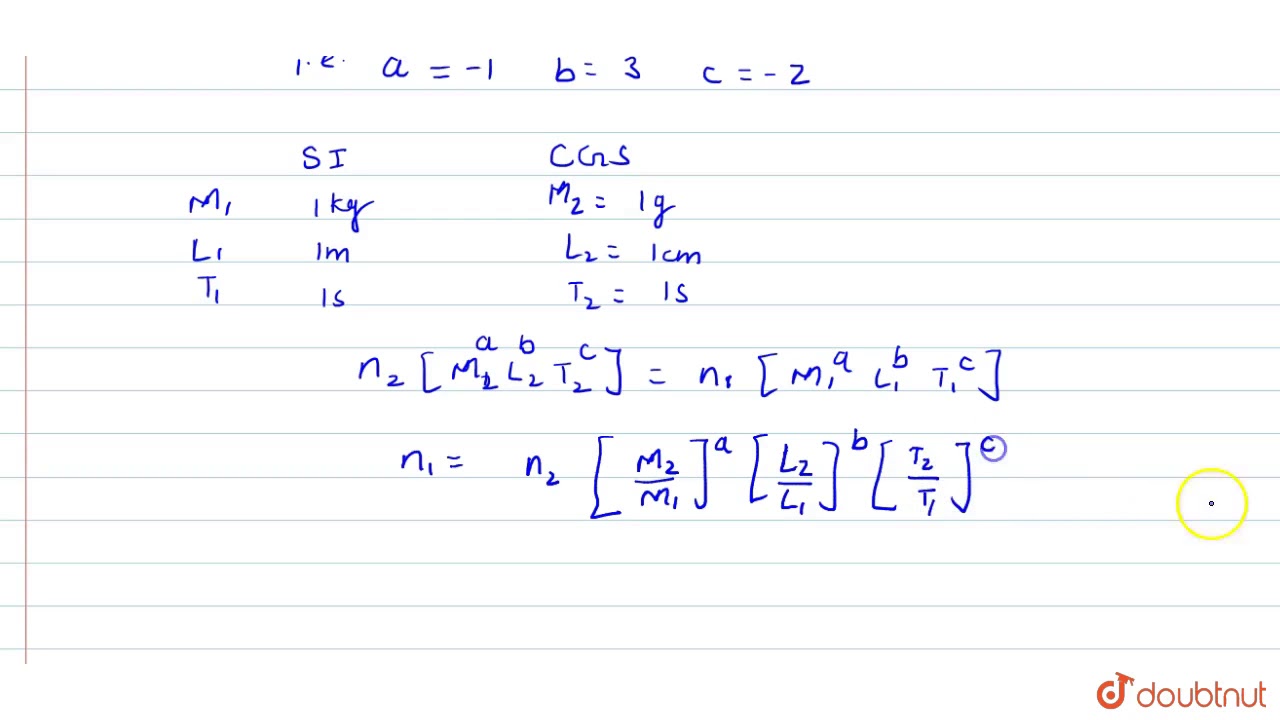 i.e. a = -1 b = 3 c = -2
SI CGS
M₁ 1kg M₂ = 1g
L₁ 1m L₂ = 1cm
T₁ 1s T₂ = 1s
n₂ [M₂ᵃ L₂ᵇ T₂ᶜ] = n₁ [M₁ᵃ L₁ᵇ T₁ᶜ]
n₁ = n₂ [M₂/M₁]ᵃ [L₂/L₁]ᵇ [T₂/T₁]ᶜ
doubtnut